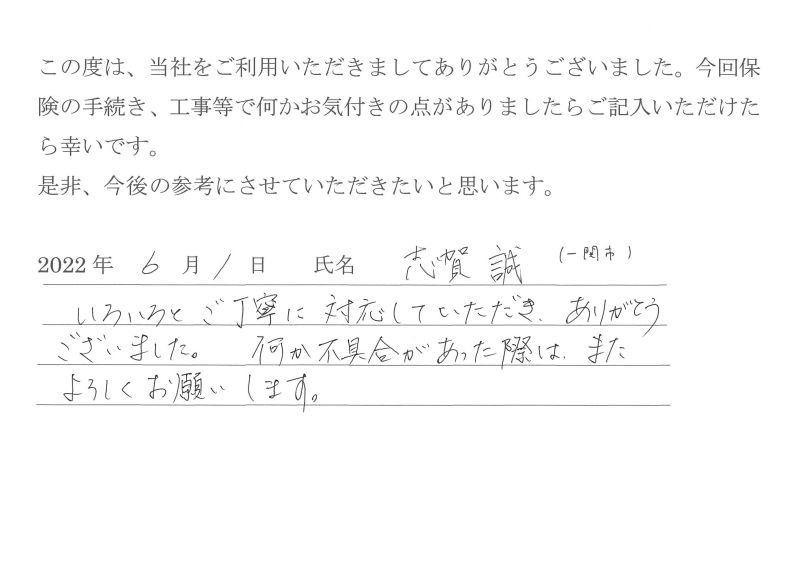 この度は、当社をご利用いただきましてありがとうございました。今回保
険の手続き、工事等で何かお気付きの点がありましたらご記入いただけた
ら幸いです。
是非、今後の参考にさせていただきたいと思います。
2022年 6 月 1 日 氏名 志賀 誠 (一関市)
いろいろとご丁寧に対応していただき、ありがとう
ございました。 何か不具合があった際は、また
よろしくお願いします。